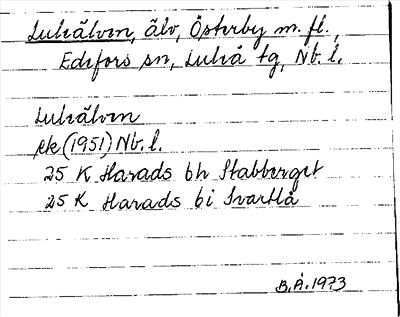 Luleälven, älv, Österby m. fl.,
Edefors sn, Luleå tg, Nb. l.
Luleälven
ek (1951) Nb. l.
25 K Harads bh Stabberget
25 K Harads bi Svartlå
B. Å. 1973